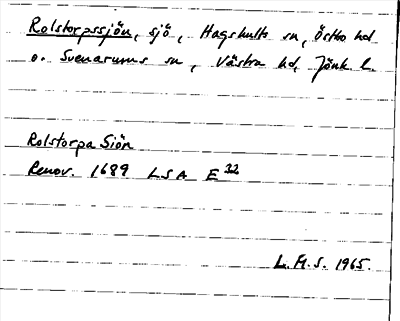 Rolstorpssjön, sjö, Hagshults sn, Östbo hd
o. Svenarums sn, Västra hd, Jönk. l.
Rolstorpa Siön
Renov. 1689 LSA E 32
L.H.S. 1965.